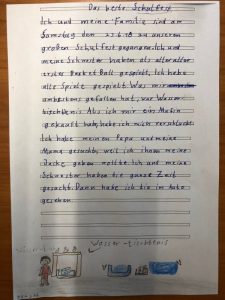 Das beste Schulfest.
Ich und meine Familie sind am
Samstag den 23.6.18 zu unseren
großen Schulfest gegangen. Ich und
meine Schwester haben als aller aller
erstes Basket Ball gespielt. Ich habe
alle Spiele gespielt. Was mir
ambestens gefallen hat, war Wasser
tischtenis. Als ich mir ein
gekauft hate, habe ich mich verschluckt.
Ich habe meinen Papa und meine
Mama gesucht, weil ich ihnen meine
Jacke geben wollte. Ich und meine
Schwester haben die ganze Zeit
gesucht. Dann habe ich sie im Auto
gesehen.
Wasser-tischtenis